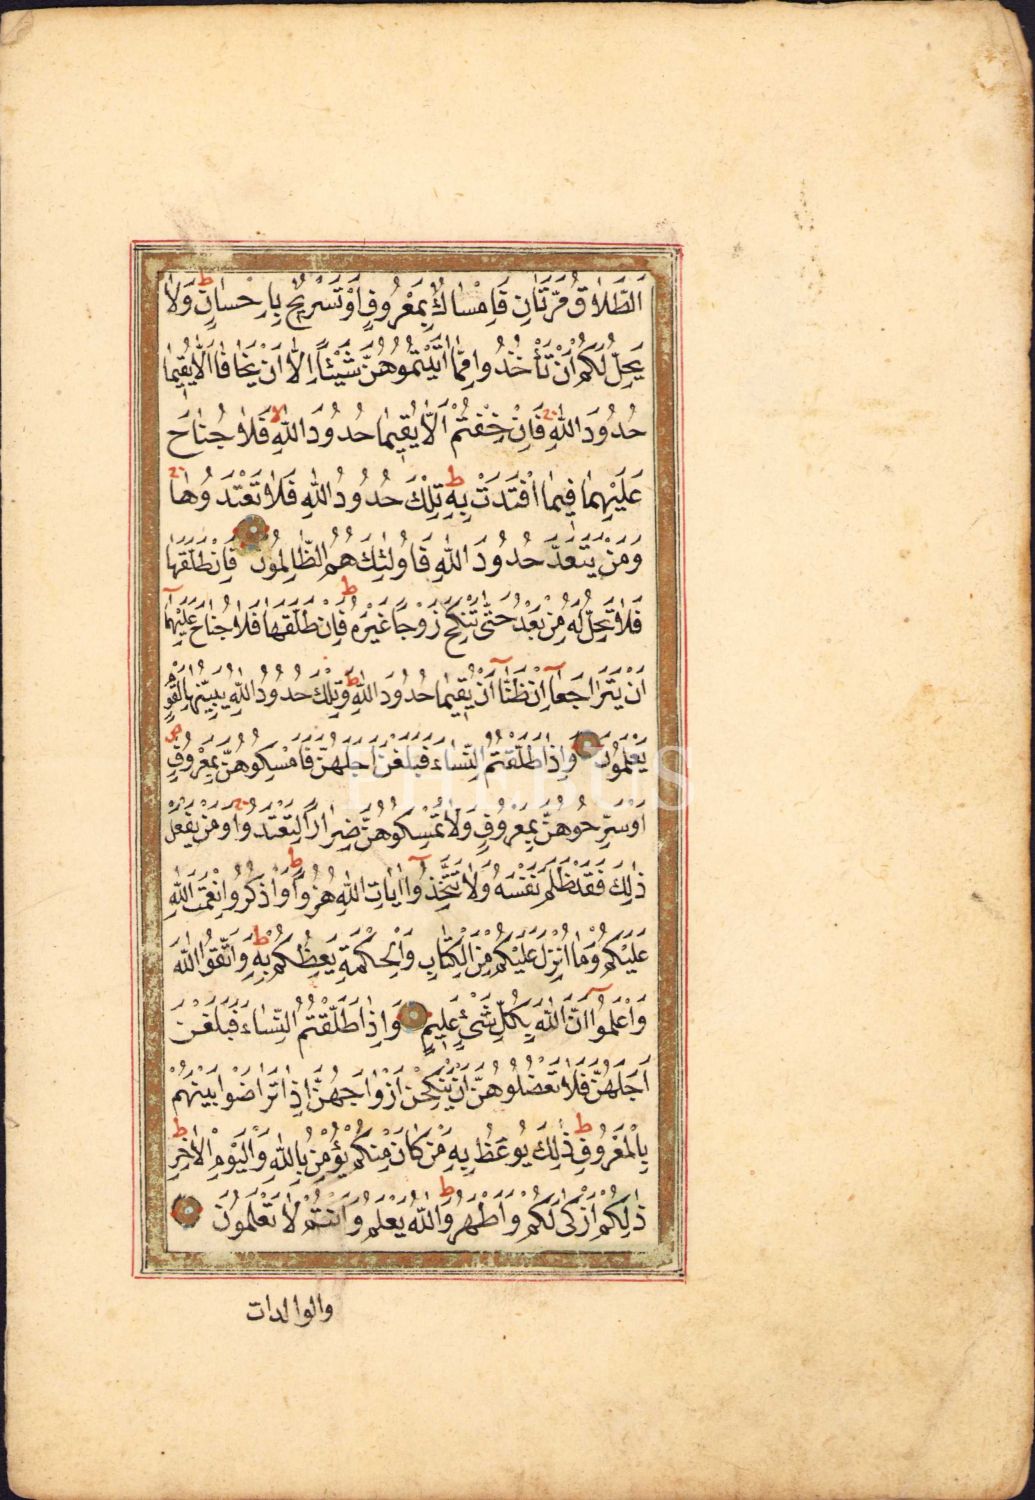 اَلطَّلَاقُ مَرَّتَانِ فَاِمْسَاكٌ بِمَعْرُوفٍ اَوْ تَسْرِيحٌ بِاِحْسَانٍ ط وَلَا
يَحِلُّ لَكُمْ اَنْ تَأْخُذُوا مِمَّا اٰتَيْتُمُوهُنَّ شَيْئًا اِلَّا اَنْ يَخَافَا اَلَّا يُقِيمَا
حُدُودَ اللّٰهِ فَاِنْ خِفْتُمْ اَلَّا يُقِيمَا حُدُودَ اللّٰهِ لا فَلَا جُنَاحَ
عَلَيْهِمَا فِيمَا افْتَدَتْ بِهِ ط تِلْكَ حُدُودُ اللّٰهِ فَلَا تَعْتَدُوهَا
وَمَنْ يَتَعَدَّ حُدُودَ اللّٰهِ فَاُولٰئِكَ هُمُ الظَّالِمُونَ فَاِنْ طَلَّقَهَا
فَلَا تَحِلُّ لَهُ مِنْ بَعْدُ حَتّٰى تَنْكِحَ زَوْجًا غَيْرَهُ ط فَاِنْ طَلَّقَهَا فَلَا جُنَاحَ عَلَيْهِمَا
اَنْ يَتَرَاجَعَا اِنْ ظَنَّا اَنْ يُقِيمَا حُدُودَ اللّٰهِ ط وَتِلْكَ حُدُودُ اللّٰهِ يُبَيِّنُهَا لِقَوْمٍ
يَعْلَمُونَ وَاِذَا طَلَّقْتُمُ النِّسَاءَ فَبَلَغْنَ اَجَلَهُنَّ فَاَمْسِكُوهُنَّ بِمَعْرُوفٍ ص
اَوْ سَرِّحُوهُنَّ بِمَعْرُوفٍ وَلَا تُمْسِكُوهُنَّ ضِرَارًا لِتَعْتَدُوا وَمَنْ يَفْعَلْ
ذٰلِكَ فَقَدْ ظَلَمَ نَفْسَهُ وَلَا تَتَّخِذُوا اٰيَاتِ اللّٰهِ هُزُوًا ط وَاذْكُرُوا نِعْمَتَ اللّٰهِ
عَلَيْكُمْ وَمَا اَنْزَلَ عَلَيْكُمْ مِنَ الْكِتَابِ وَالْحِكْمَةِ يَعِظُكُمْ بِهِ ط وَاتَّقُوا اللّٰهَ
وَاعْلَمُوا اَنَّ اللّٰهَ بِكُلِّ شَيْءٍ عَلِيمٌ وَاِذَا طَلَّقْتُمُ النِّسَاءَ فَبَلَغْنَ
اَجَلَهُنَّ فَلَا تَعْضُلُوهُنَّ اَنْ يَنْكِحْنَ اَزْوَاجَهُنَّ اِذَا تَرَاضَوْا بَيْنَهُمْ
بِالْمَعْرُوفِ ط ذٰلِكَ يُوعَظُ بِهِ مَنْ كَانَ مِنْكُمْ يُؤْمِنُ بِاللّٰهِ وَالْيَوْمِ الْاٰخِرِ ط
ذٰلِكُمْ اَزْكٰى لَكُمْ وَاَطْهَرُ ط وَاللّٰهُ يَعْلَمُ وَاَنْتُمْ لَا تَعْلَمُونَ
والوالدات